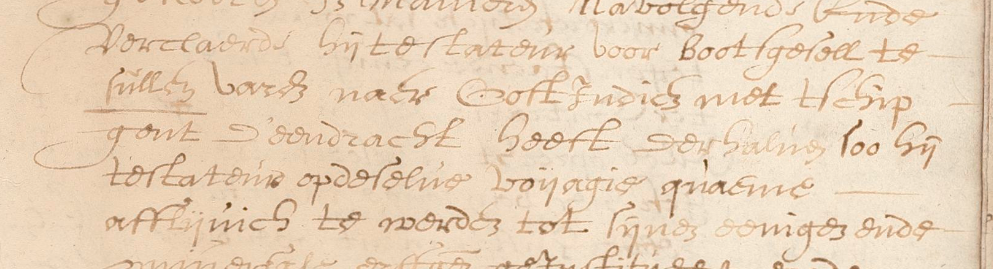 in manieren navolgende Ende
verclaerde hij testateur voor Bootsgesell te
sullen varen naer Oost Indien met tschip
gent D'eendracht heeft derhalven soo hij
testateur opdeselve voijagie quaeme
afflijvich te werden tot sijnen eenigen ende